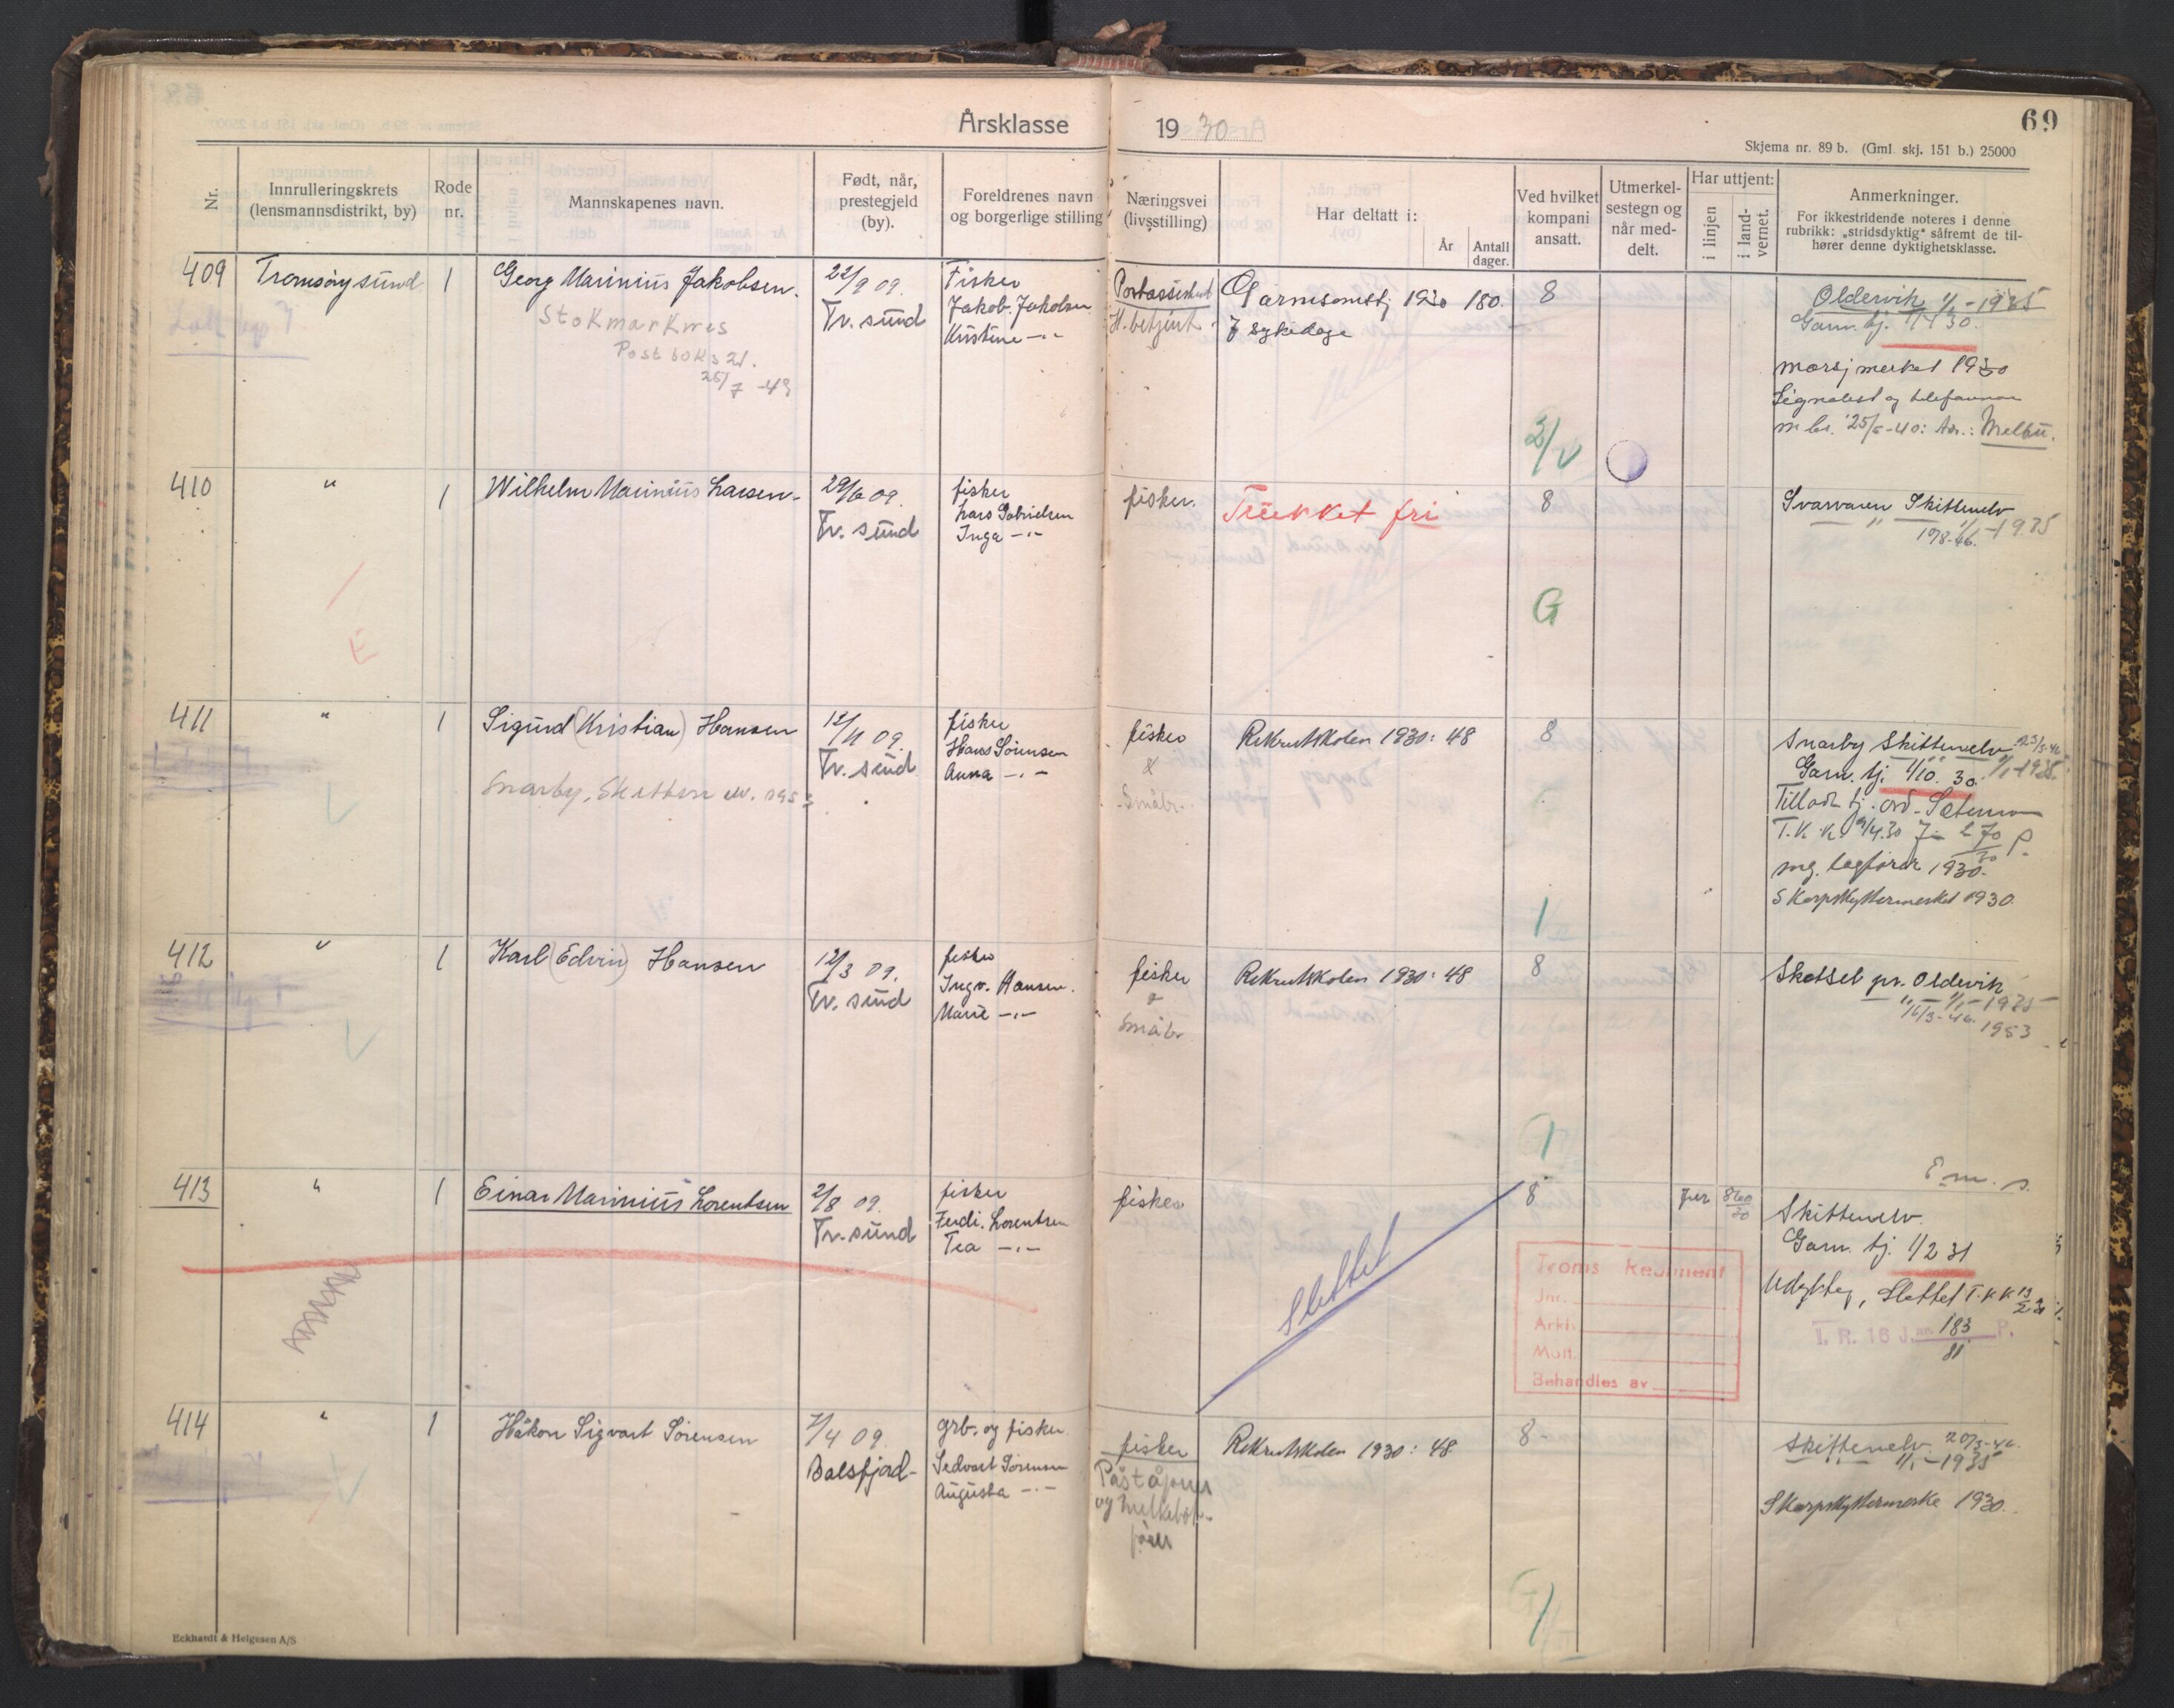 Årsklasse 1930
69
Skjema nr. 89 b. (Gml. skj. 151 b.) 25000
Nr.
Innrulleringskrets
(lensmannsdistrikt, by)
Rode
nr.
Mannskapenes navn.
Født, når,
prestegjeld
(by).
Foreldrenes navn
og borgerlige stilling
Næringsvei
(livsstilling)
Har deltatt i:
År
Antall
dager.
Ved hvilket
kompani
ansatt.
Utmerkel-
sestegn og
når med-
delt.
Har uttjent:
i linjen
i land-
vernet.
Anmerkninger.
For ikkestridende noteres i denne
rubrikk: „stridsdyktig“ såfremt de til-
hører denne dyktighetsklasse.
409
Tromsøysund
1
Georg Marinius Jakobsen.
Stokmarknes
Postboks 21.
25/7 -43
22/9 09.
Tr. sund
Fisker
Jakob Jakobsen
Kristine -"-
Postassistent
H. betjent
Garnisonstj 1930 180.
7 sykedage
8
2/V
Oldervik 1/1-1935
Garn. tj. 1/4 30.
Marsjmerket 1930
Signalist og telefonman
25/6-40: Adr.: Melbu.
410
"
1
Wilhelm Marinius Larsen
29/6 09.
Tr. sund
fisker
Lars Gabrielsen
Inga -"-
fisker.
Trukket fri
8
G
Svarvaren Skittenelv
" 1/1-1935
10/8-46.
E
411
"
1
Sigurd (Kristian) Hansen
Snarby, Skittenelv. 1953
12/11 09.
Tr. sund
fisker
Hans Sørensen
Anna -"-
fisker
&
Småbr.
Rekrutskolen 1930: 48
8
1
Snarby Skittenelv 23/3-46
Garn. tj. 1/10. 30. 1/1-1935.
T.K.K. 9/4.30
mg. lagfører 1930.
Skarpskyttermerket 1930.
412
"
1
Karl (Edvin) Hansen
12/3 09.
Tr. sund
fisker
Ingv. Hansen.
Marie -"-
fisker
&
Småbr
Rekrutskolen 1930: 48
8
1
Skotsel pr. Oldervik
" 1/1-1935
16/3-46. 1953
413
"
1
Einar Marinius Lorentsen
2/8 09.
Tr. sund
fisker
Ferdi. Lorentsen
Tea -"-
fisker
Slettet
8
Skittenelv.
Garn. tj. 1/2 31
Udyktig, Slettet T.K.K.
I. R. 16 J.nr. 183 P.
31
Troms Regiment
Jnr.
Arki.
Mott.
Behandles av
414
"
1
Håkon Sigvart Sørensen
7/4 09.
Balsfjord
grb. og fisker
Sedvart Sørensen
Augusta -"-
fisker
Rekrutskolen 1930: 48
8
1
Skittenelv 20/3-46.
1/1-1935
Skarpskyttermerke 1930.
Eckhardt & Helgesen A/S